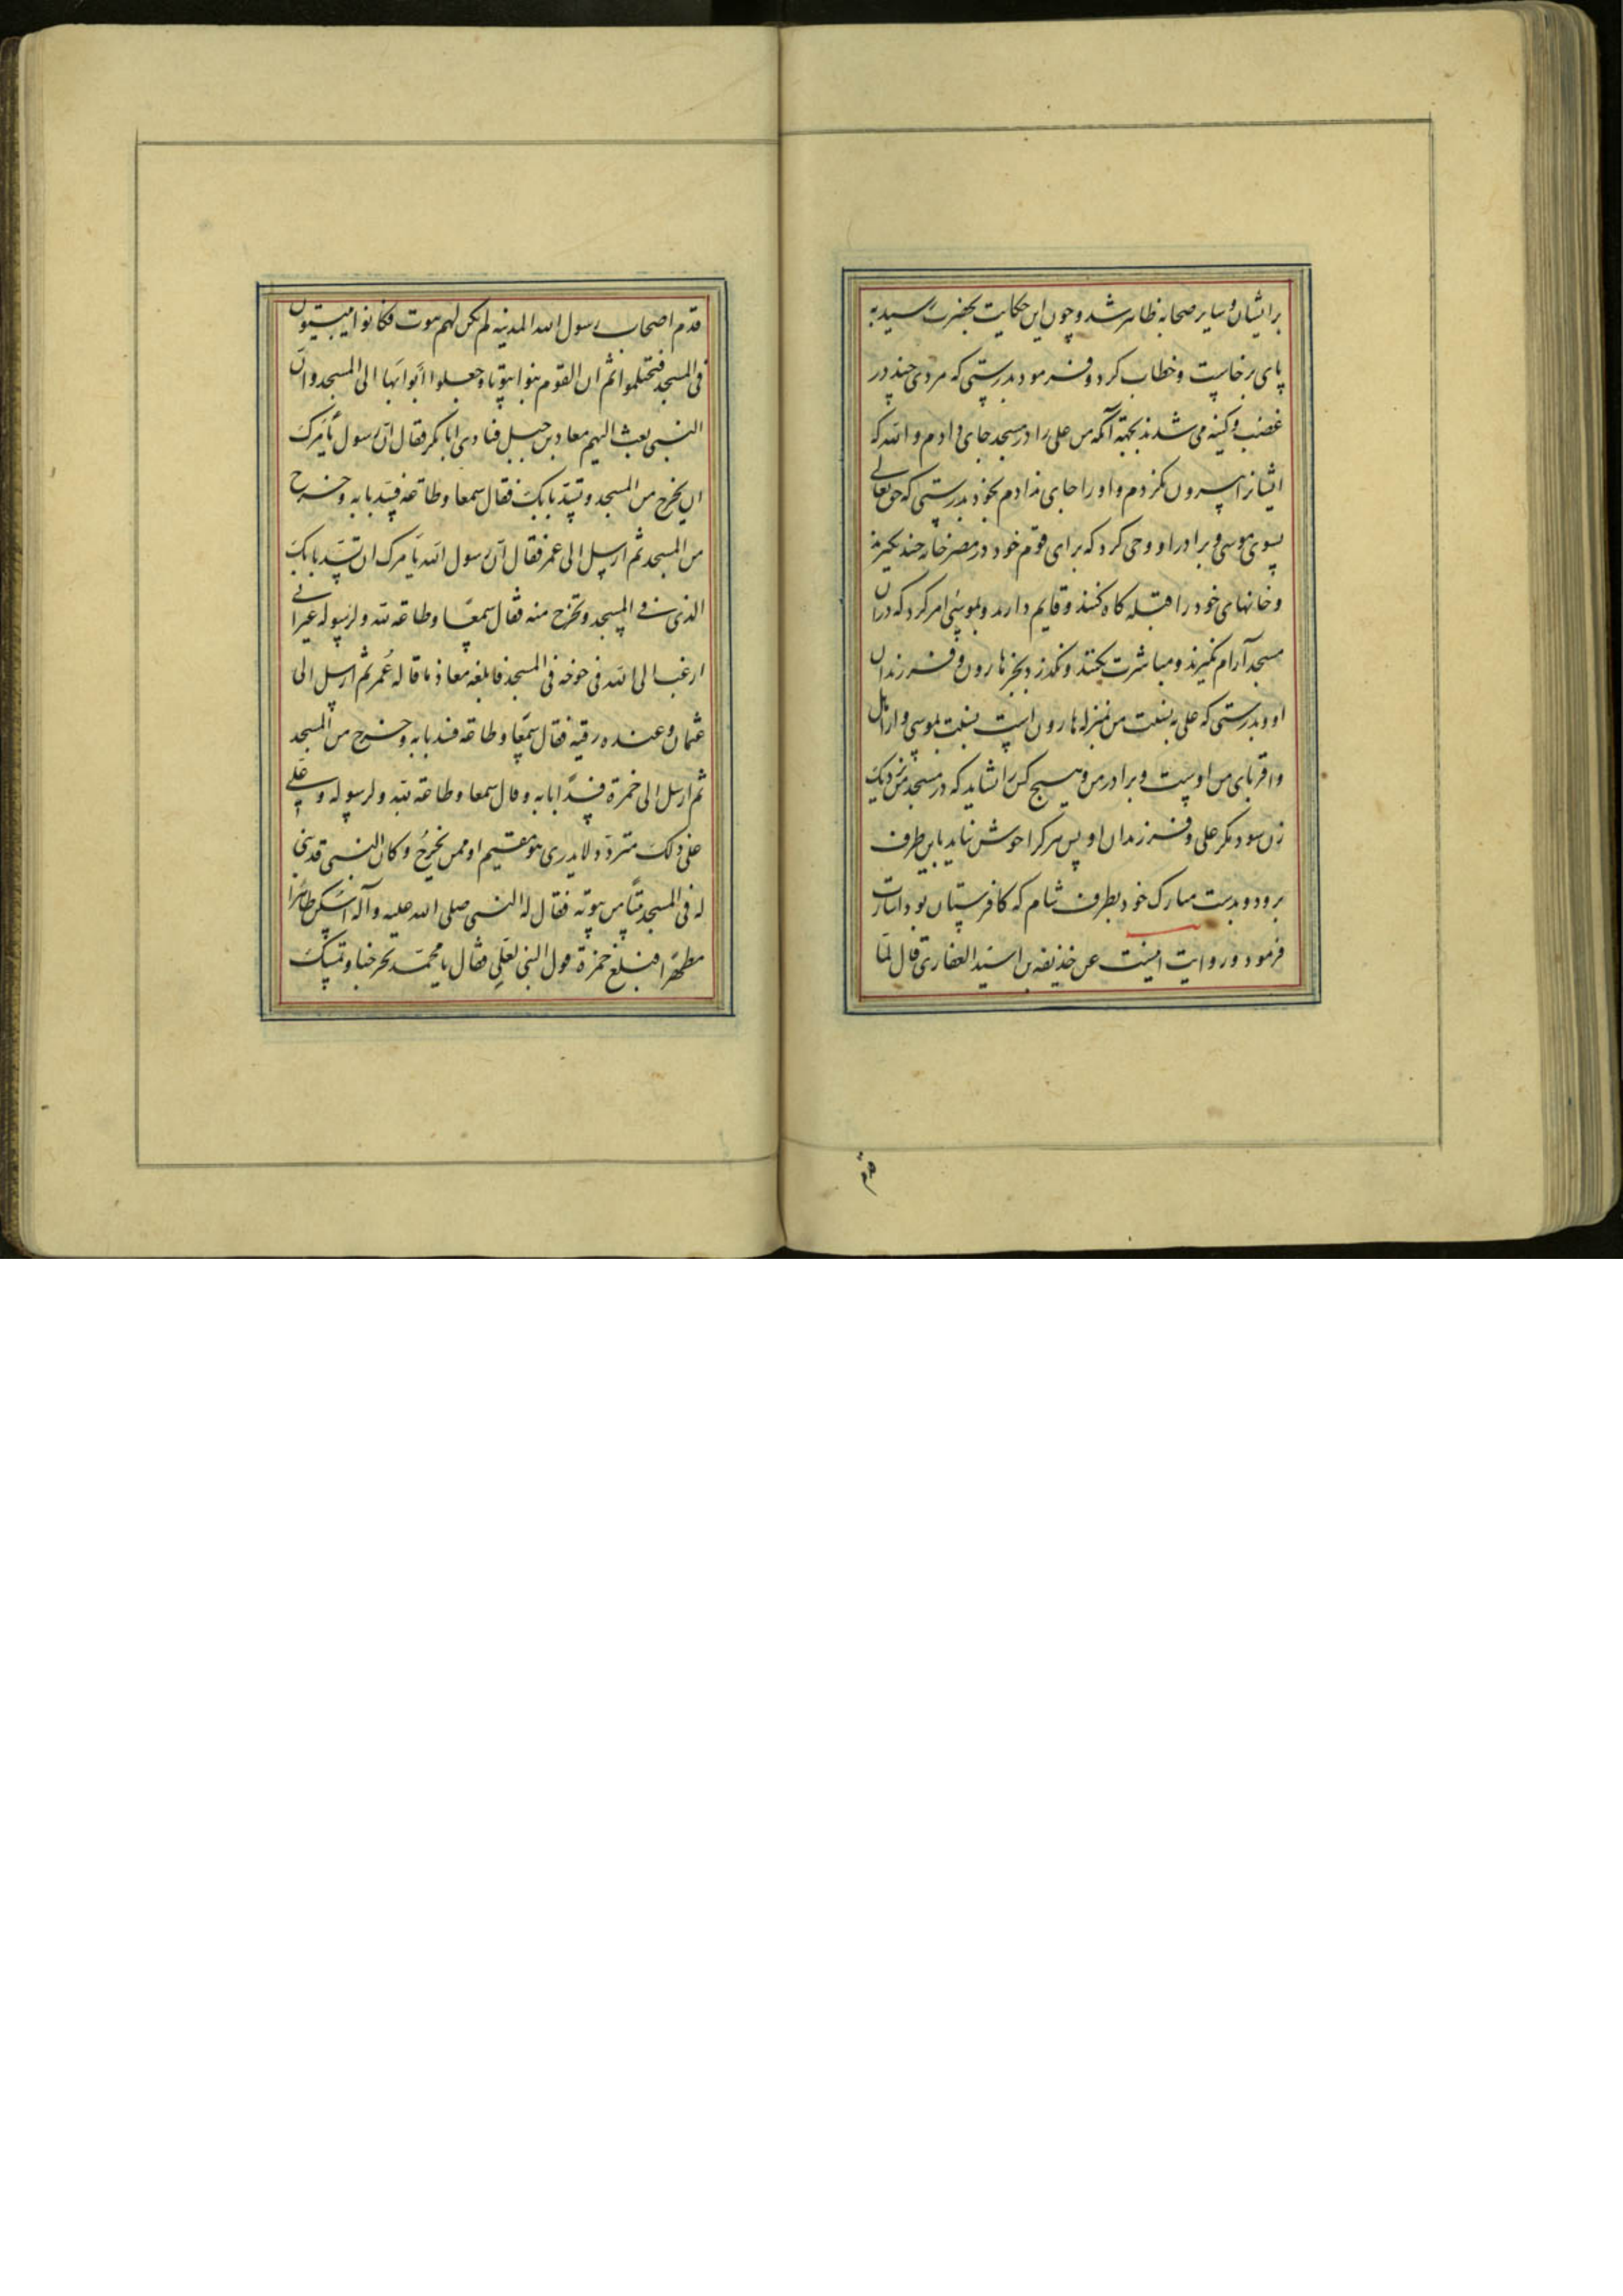 برایشان و سایر صحابه ظاهر شد و چون این حکایت بحضرت رسید به
پای برخاست و خطاب کرد و فرمود بدرستی که مردی چند در
غضب و کینه می شدند بجهة آنکه من علی را در مسجد جای دادم و الله که
ایشانرا بیرون نکردم و او را جای ندادم بخود بدرستی که حق تعالی
بسوی موسی و برادر او وحی کرد که برای قوم خود در مصر خانه چند بگیرند
و خانهای خود را قبله کاه کنند و قایم دارند و بموسی امر کرد که در ان
مسجد آرام نگیرند و مباشرت نکنند و نگذرد بجز هارون و فرزندان
او و بدرستی که علی به نسبت من بمنزله هارون است بنسبت بموسی و از اهل
و اقربای من اوست و برادر من و هیچ کس را نشاید که در مسجد من نزدیک
زن شود مکر علی و فرزندان او پس هر کرا خوش نیاید باین طرف
برود و بدست مبارک خود بطرف شام که کافرستان بود اشارت
فرمود و روایت اینست عن حذیفه بن اسید الغفاری قال لما
قدم
قدم اصحاب رسول الله المدینه لم یکن لهم بیوت فکانوا یبیتون
فی المسجد فتحتلموا ثم ان القوم بنوا بیوتا و جعلوا ابوابها الی المسجد و ان
النبی بعث الیهم معاد بن جبل فنادی ابا بکر فقال ان رسول یأمرک
ان یخرج من المسجد و تسد بابک فقال سمعا و طاعه فسد بابه و خرج
من المسجد ثم ارسل الی عمر فقال ان رسول الله یامرک ان تسد بابک
الذی فی المسجد و تخرج منه فقال سمعا و طاعه لله و لرسوله غیر انی
ارغب الی الله فی خوخه فی المسجد فابلغه معاذ ما قاله عمر ثم ارسل الی
عثمان و عنده رقیه فقال سمعا و طاعه فسد بابه و خرج من المسجد
ثم ارسل الی حمزة فسد بابه و قال سمعا و طاعه لله و لرسوله و علی
علی ذلک متردد لا یدری هو مقیم او ممن یخرج و کان النبی قد بنی
له فی المسجد بیتا من بیوته فقال له النبی صلی الله علیه و آله اسکن طاهرا
مطهرا فبلغ حمزة قول النبی لعلی فقال یا محمد تخرجنا و تمسک